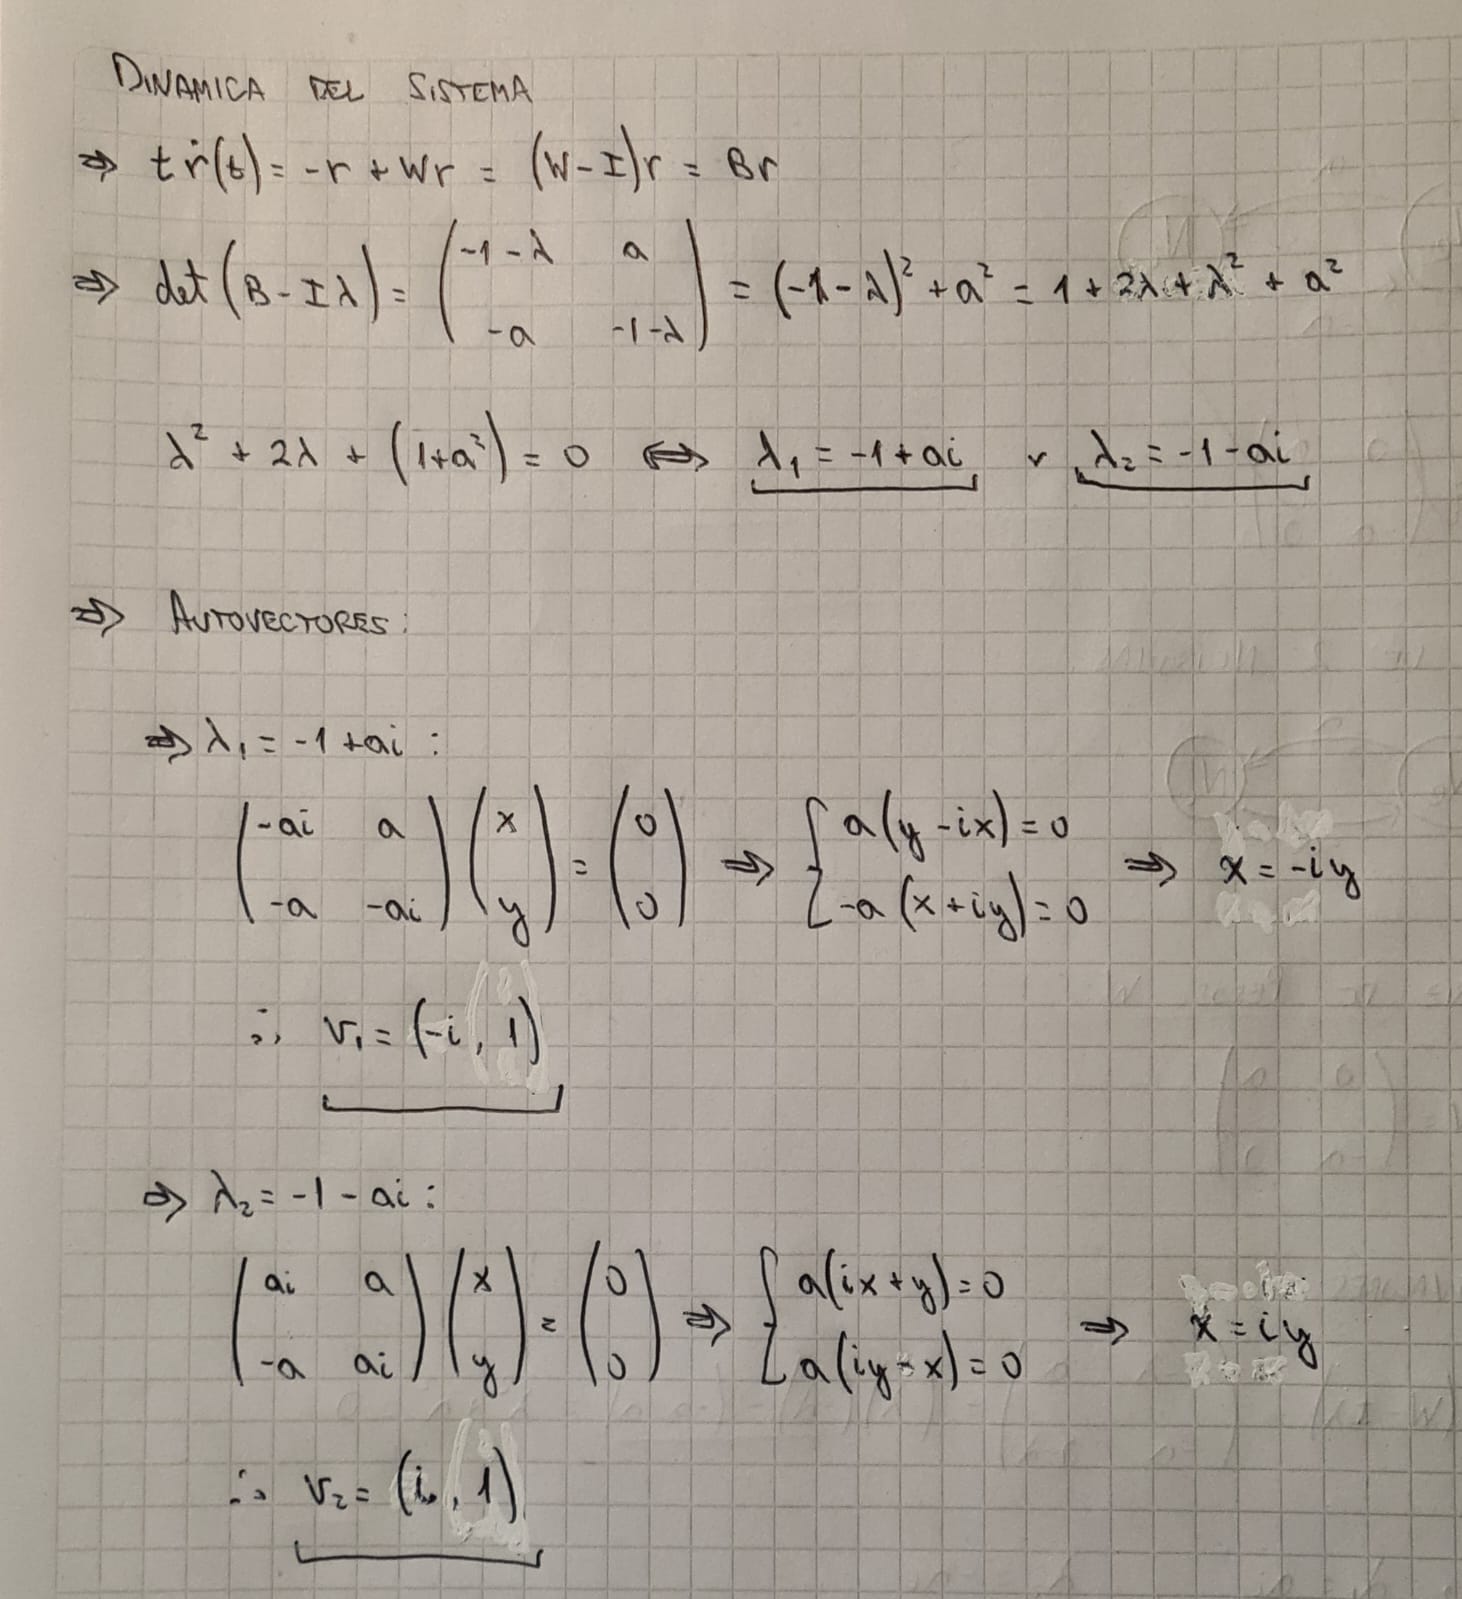 DINAMICA DEL SISTEMA
⇒ tṙ(t) = -r + Wr = (W-I)r = Br
⇒ det(B-Iλ) = (-1-λ a
-a -1-λ) = (-1-λ)² + a² = 1 + 2λ + λ² + a²
λ² + 2λ + (1+a²) = 0 ⇔ λ₁ = -1 + ai v λ₂ = -1 - ai
⇒ AUTOVECTORES:
⇒ λ₁ = -1 + ai :
(-ai a
-a -ai) (x
y) = (0
0) ⇒ { a(y - ix) = 0
-a(x + iy) = 0 ⇒ x = -iy
∴ v₁ = (-i, 1)
⇒ λ₂ = -1 - ai :
(ai a
-a ai) (x
y) = (0
0) ⇒ { a(ix + y) = 0
a(iy - x) = 0 ⇒ x = iy
∴ v₂ = (i, 1)